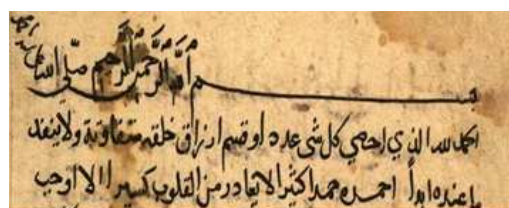 بسم الله الرحمن الرحيم صلى الله
الحمد لله الذي احصي كل شي عدد او قسم ارزاق خلقه متفاوتة ولا ينفد
ما عنده ابداً احمده حمدا كثيرا لا يغادر من القلوب الا اوجب